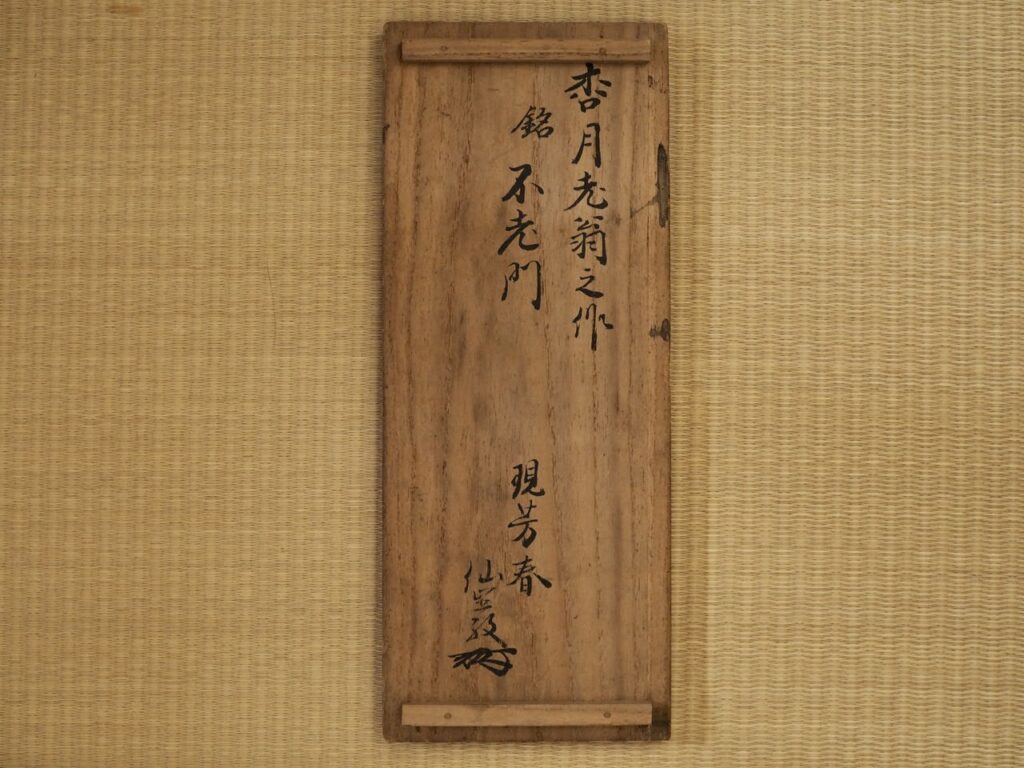 杏月老翁之作
銘 不老門
現芳春
仙